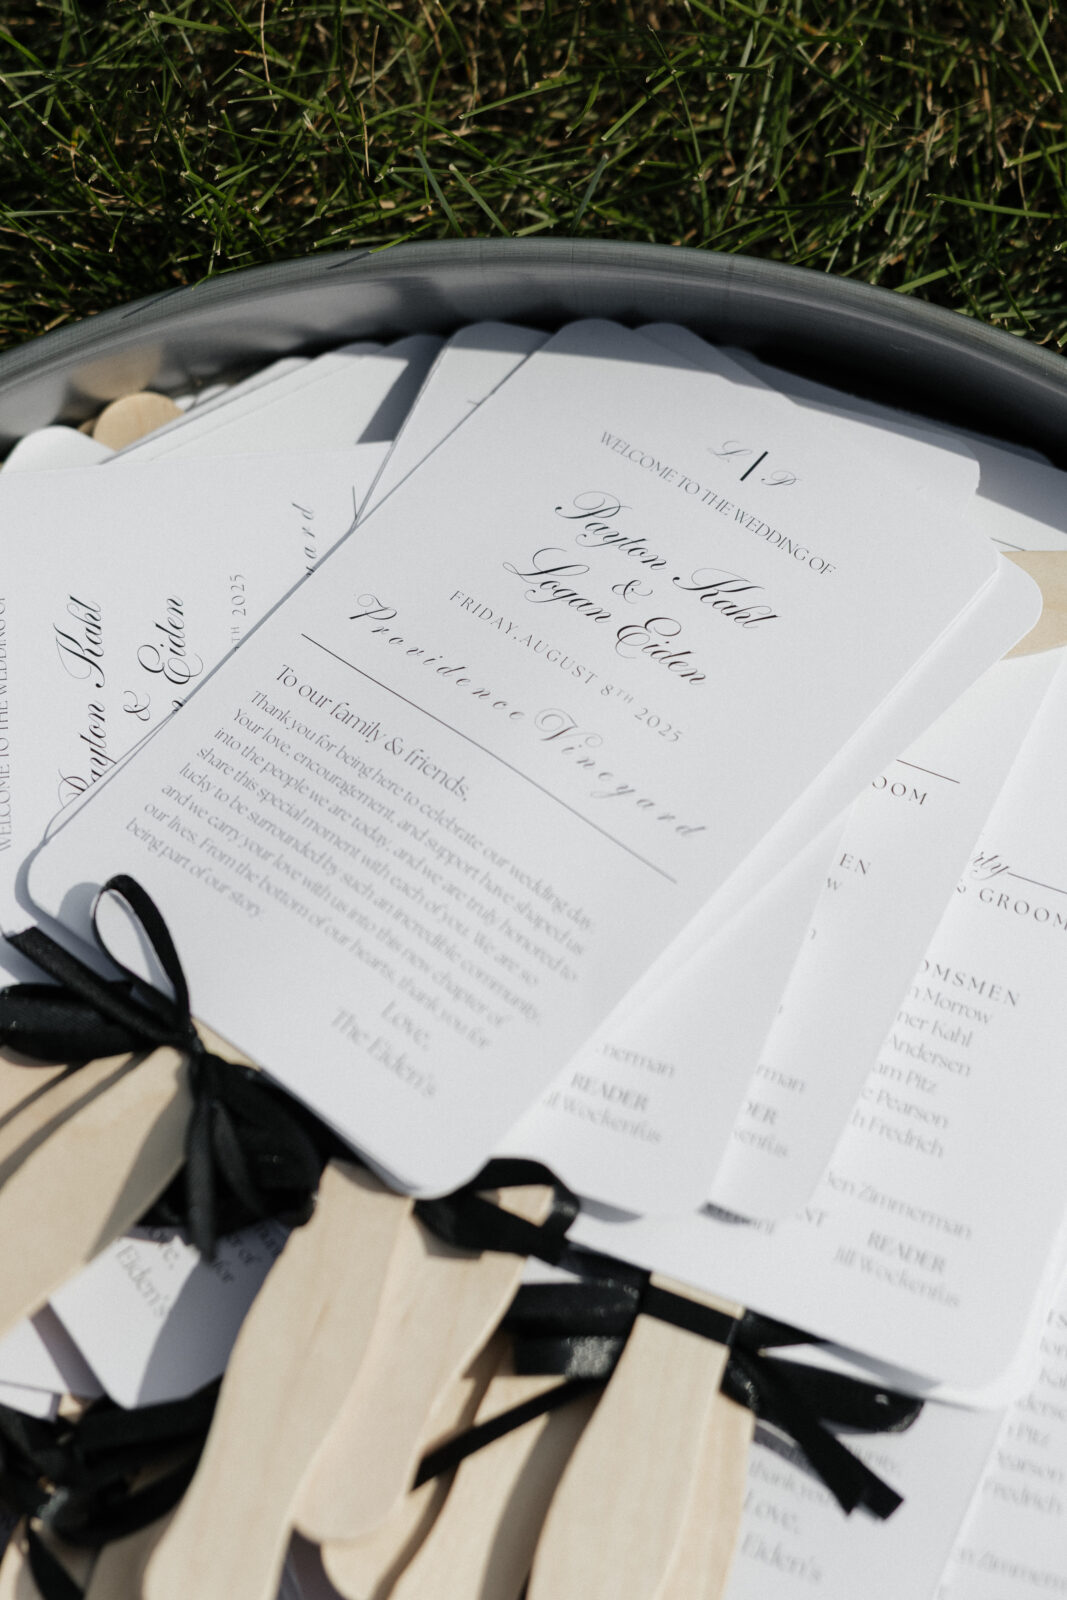 L | P
WELCOME TO THE WEDDING OF
Payton Kahl
&
Logan Eiden
FRIDAY, AUGUST 8TH 2025
Providence Vineyard
To our family & friends,
Thank you for being here to celebrate our wedding day.
Your love, encouragement, and support have shaped us
into the people we are today, and we are truly honored to
share this special moment with each of you. We are so
lucky to be surrounded by such an incredible community,
and we carry your love with us into this new chapter of
our lives. From the bottom of our hearts, thank you for
being part of our story.
Love,
The Eiden's
WELCOME TO THE WEDDING OF
Payton Kahl
&
Eiden
TH 2025
ard
OOM
EN
W
rty
& GROOM
OMSMEN
n Morrow
ner Kahl
Andersen
am Pitz
e Pearson
h Fredrich
den Zimmerman
READER
Jill Wockenfus
mmerman
READER
ill Wockenfus
rman
DER
ckenfus
NT
Eiden's
Love,
Eiden's
Pitz
earson
Fredrich
en Zimmerman